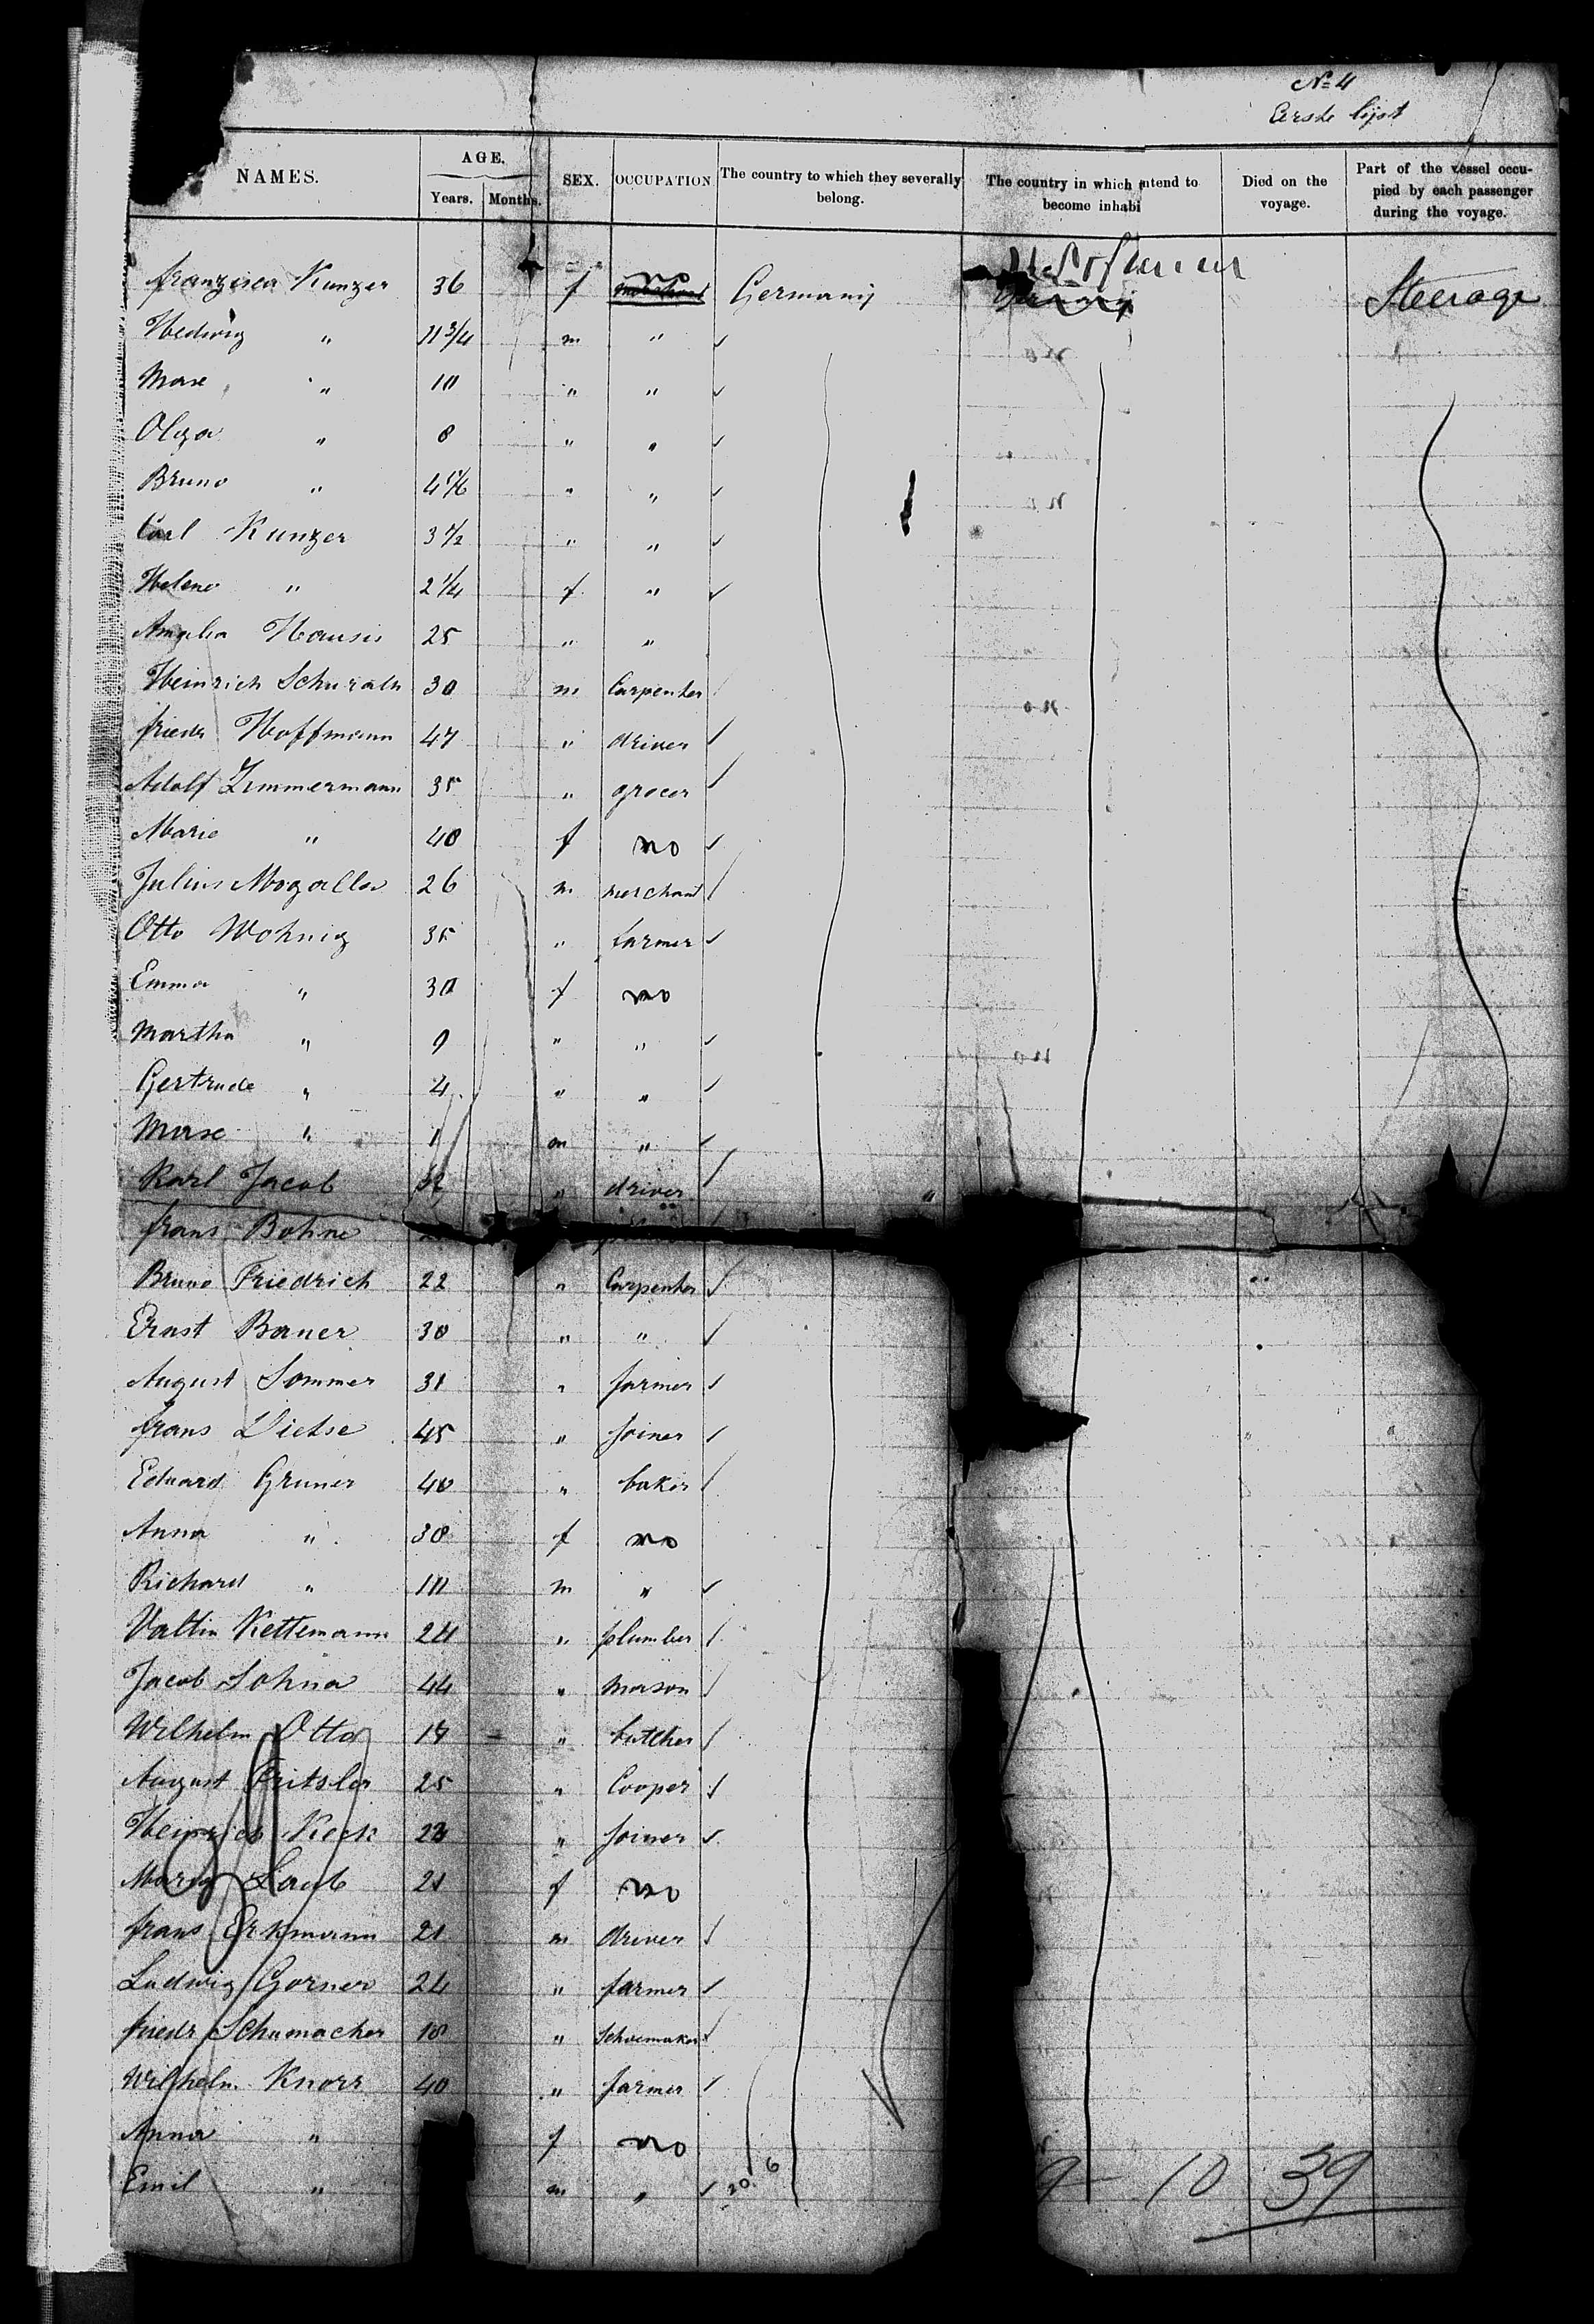 No 4
Eerste lijst
NAMES. AGE. Years. Months. SEX. OCCUPATION The country to which they severally belong. The country in which intend to become inhabi Died on the voyage. Part of the vessel occupied by each passenger during the voyage.
Franzisca Kunzer 36 f no Germany Steerage
Hedwig " 11 3/4 m " ✓
Maxe " 10 " " ✓
Olga " 8 " " ✓
Bruno " 4 " " ✓
Carl Kunzer 3 1/2 " " ✓
Helene " 2 1/4 f " ✓
Amalia 25 " "
Heinrich 30 m Carpenter
friedr Hoffmann 47 " driver ✓
Adolf Zimmermann 35 " grocer ✓
Marie " 40 f no ✓
Julius Mogalla 26 m merchant ✓
Otto Wohnig 35 " farmer ✓
Emma " 30 f no
Martha " 9 " " ✓
Gertrude " 4 " " ✓
Maxe " 1 m " ✓
Karl Jacob 32 " driver ✓
frans Bohne
Bruno Friedrich 22 " Carpenter ✓
Ernst Bauer 30 " " ✓
August Sommer 31 " farmer ✓
frans Dietse 45 " Joiner ✓
Eduard Gruner 40 " baker ✓
Anna " 38 f no
Richard " 10 m " ✓
Valtin Kettemann 24 " plumber ✓
Jacob Sohna 44 " mason ✓
Wilhelm Otto 17 " butcher ✓
August Fritsler 25 " Cooper ✓
Heinrich Keck 23 " Joiner ✓
Maria Laub 21 f no
frans Erkmann 21 m driver ✓
Ludwig Gorner 24 " farmer ✓
friedr Schumacher 18 " Schoemaker ✓
Wilhelm Knorr 40 " farmer ✓
Anna " f no
Emil " m " ✓ 20 6
9 - 10 39